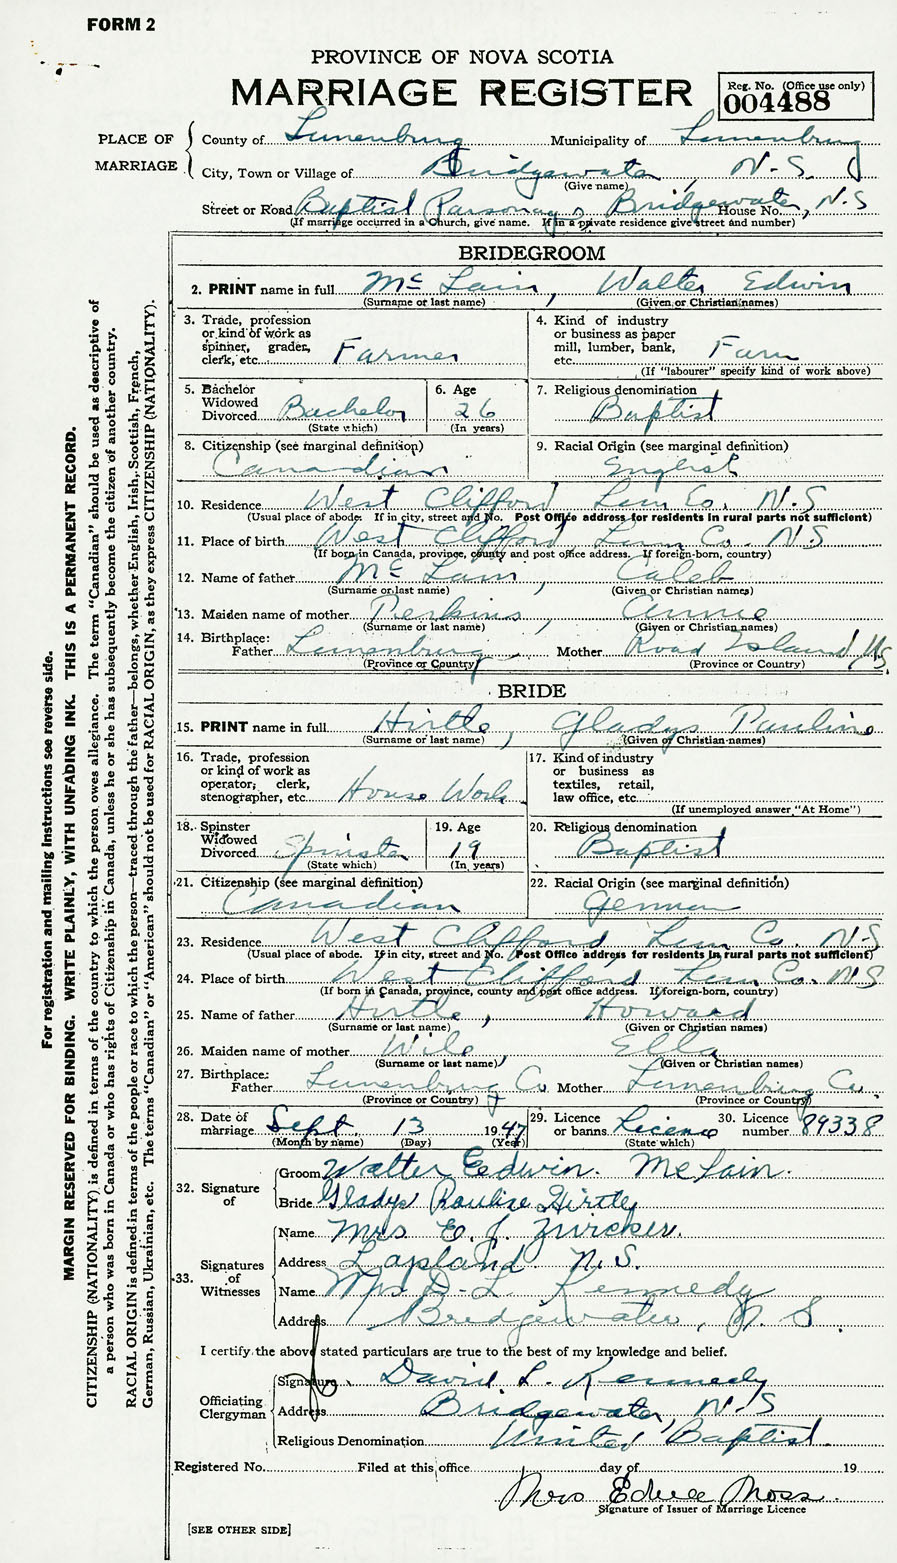 FORM 2
PROVINCE OF NOVA SCOTIA
MARRIAGE REGISTER
Reg. No. (Office use only)
004488
PLACE OF MARRIAGE
County of Lunenburg Municipality of Lunenburg
City, Town or Village of Bridgewater, N-S
(Give name)
Street or Road Baptist Parsonage, Bridgewater, N-S House No.
(If marriage occurred in a Church, give name. If in a private residence give street and number)
BRIDEGROOM
2. PRINT name in full Mc Lain, Walter Edwin
(Surname or last name) (Given or Christian names)
3. Trade, profession or kind of work as spinner, grader, clerk, etc. Farmer
4. Kind of industry or business as paper mill, lumber, bank, etc. Farm
(If "labourer" specify kind of work above)
5. Bachelor Widowed Divorced Bachelor
(State which)
6. Age 26
(In years)
7. Religious denomination
Baptist
8. Citizenship (see marginal definition)
Canadian
9. Racial Origin (see marginal definition)
English
10. Residence West Clifford Lun Co. N-S
(Usual place of abode. If in city, street and No. Post Office address for residents in rural parts not sufficient)
11. Place of birth West Clifford Lun Co. N S
(If born in Canada, province, county and post office address. If foreign-born, country)
12. Name of father Mc Lain, Caleb
(Surname or last name) (Given or Christian names)
13. Maiden name of mother Perkins, Annie
(Surname or last name) (Given or Christian names)
14. Birthplace:
Father Lunenburg Mother Road Island U.S.
(Province or Country) (Province or Country)
BRIDE
15. PRINT name in full Hirtle, Gladys Pauline
(Surname or last name) (Given or Christian names)
16. Trade, profession or kind of work as operator, clerk, stenographer, etc. House Work
17. Kind of industry or business as textiles, retail, law office, etc.
(If unemployed answer "At Home")
18. Spinster Widowed Divorced Spinster
(State which)
19. Age 19
(In years)
20. Religious denomination
Baptist
21. Citizenship (see marginal definition)
Canadian
22. Racial Origin (see marginal definition)
German
23. Residence West Clifford, Lun Co. N-S
(Usual place of abode. If in city, street and No. Post Office address for residents in rural parts not sufficient)
24. Place of birth West Clifford Lun Co. N S
(If born in Canada, province, county and post office address. If foreign-born, country)
25. Name of father Hirtle, Howard
(Surname or last name) (Given or Christian names)
26. Maiden name of mother Wile, Ella
(Surname or last name) (Given or Christian names)
27. Birthplace:
Father Lunenburg Co Mother Lunenburg Co.
(Province or Country) (Province or Country)
28. Date of marriage Sept. 13 1947
(Month by name) (Day) (Year)
29. Licence or banns Licence
(State which)
30. Licence number 89338
32. Signature of
Groom Walter Edwin. McLain.
Bride Gladys Pauline Hirtle
33. Signatures of Witnesses
Name Mrs E. J. Zwicker.
Address Lapland. N.S.
Name Mrs D-L Kennedy
Address Bridgewater, N. S.
I certify the above stated particulars are true to the best of my knowledge and belief.
Officiating Clergyman
Signature David L. Kennedy
Address Bridgewater, N-S
Religious Denomination United Baptist.
Registered No. Filed at this office day of 19
Mrs Moss.
Signature of Issuer of Marriage Licence
[SEE OTHER SIDE]
For registration and mailing instructions see reverse side.
MARGIN RESERVED FOR BINDING. WRITE PLAINLY, WITH UNFADING INK. THIS IS A PERMANENT RECORD.
CITIZENSHIP (NATIONALITY) is defined in terms of the country to which the person owes allegiance. The term "Canadian" should be used as descriptive of
a person who was born in Canada or who has rights of Citizenship in Canada, unless he or she has subsequently become the citizen of another country.
RACIAL ORIGIN is defined in terms of the people or race to which the person—traced through the father—belongs, whether English, Irish, Scottish, French,
German, Russian, Ukrainian, etc. The terms "Canadian" or "American" should not be used for RACIAL ORIGIN, as they express CITIZENSHIP (NATIONALITY).